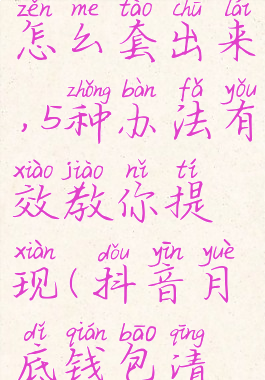 zěn me tào chū lái
怎么套出来
zhǒng bàn fǎ yǒu
,5种办法有
xiào jiào nǐ tí
效教你提
xiàn dǒu yīn yuè
现(抖音月
dǐ qián bāo qīng
底钱包清